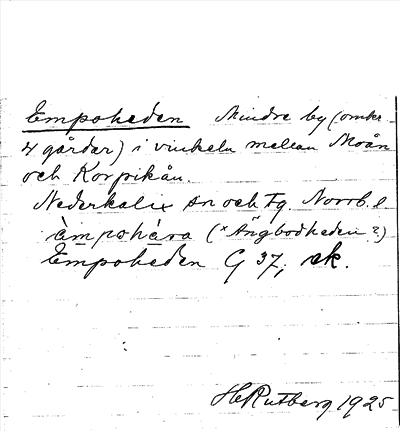 Empoheden Mindre by (omkr.
4 gårdar) i vinkeln mellan Moån
och Korpikån.
Nederkalix sn och tg. Norrb. l.
(*Ängbodheden?)
Empoheden G 37, ek.
H Rutberg 1925